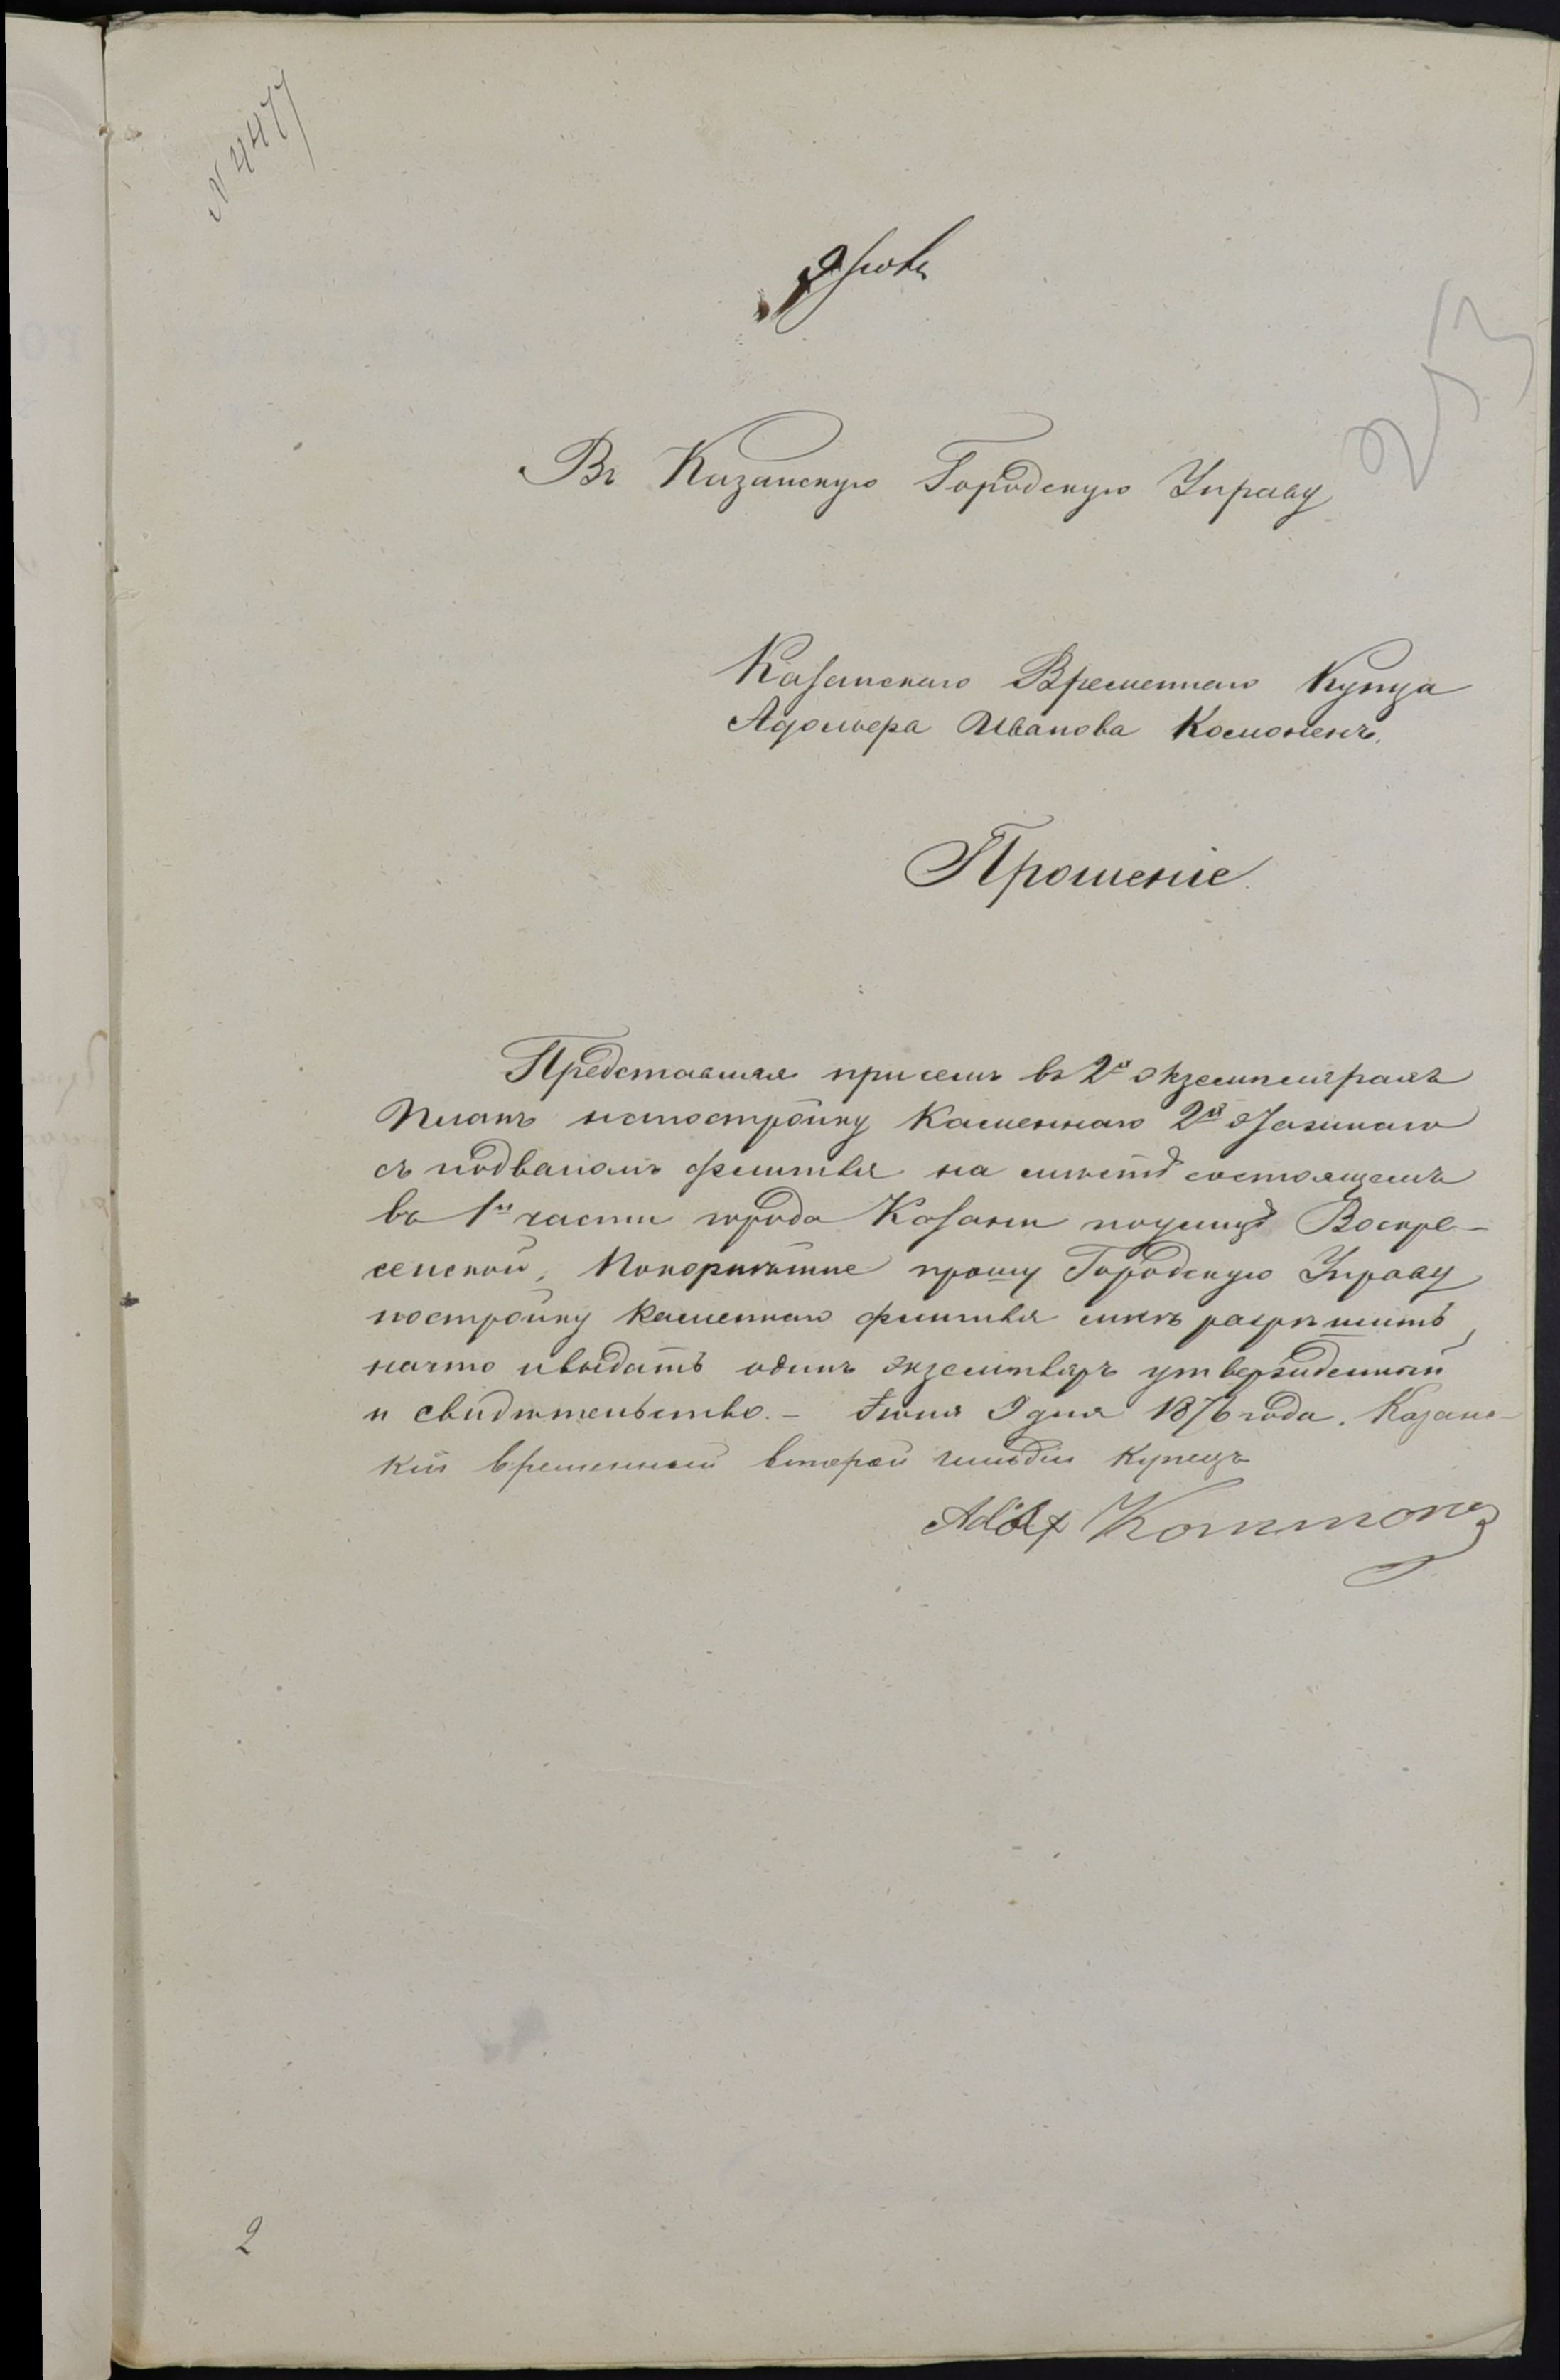 N 4477
9 Іюня
253
Въ Казанскую Городскую Управу
Казанскаго Временнаго Купца
Адольфа Иванова Комоненъ.
Прошеніе.
Представляя присемъ въ 2х экземплярахъ
Планъ напостройку Каменнаго 2х этажнаго
съ подваломъ флигеля на мѣстѣ состоящемъ
въ 1й части города Казани поулицѣ Воскре-
сенской, Покорнѣйше прошу Городскую Управу
постройку каменнаго флигеля мнѣ разрѣшить,
начто ивыдать одинъ экземпляръ утвержденный
и свидѣтельство. – Іюня 9 дня 1876 года. Казанс-
кій временный второй гильдіи Купецъ
Adolf Kommonen
2